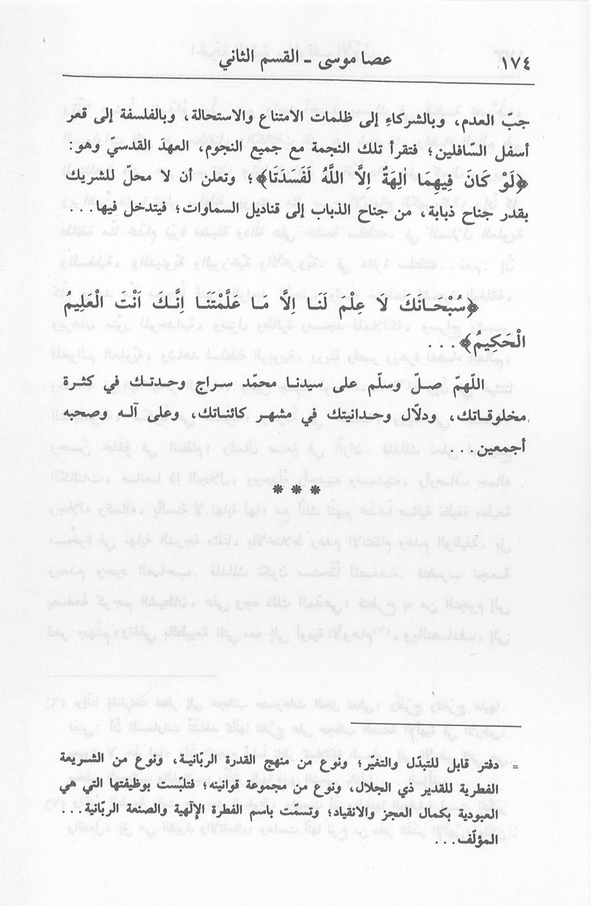 ١٧٤
عصا موسى - القسم الثاني
جبّ العدم، وبالشركاءِ إلى ظلمات الامتناع والاستحالة، وبالفلسفة إلى قعر
أسفل السّافلين؛ فتقرأ تلك النجمة مع جميع النجوم، العهدَ القدسيّ وهو:
﴿لَوْ كَانَ فِيهِمَا اٰلِهَةٌ اِلاَّ اللّٰهُ لَفَسَدَتَا﴾؛ وتعلن أن لا محلّ للشريك
بقدر جناح ذبابة، من جناح الذباب إلى قناديل السماوات؛ فيتدخل فيها...
﴿سُبْحَانَكَ لاَ عِلْمَ لَنَا اِلاَّ مَا عَلَّمْتَنَا اِنَّكَ اَنْتَ الْعَلِيمُ
الْحَكِيمُ﴾...
اللّهمّ صلّ وسلّم على سيدنا محمّد سراج وحدتك في كثرة
مخلوقاتك، ودلّال وحدانيتك في مشهر كائناتك، وعلى آلـه وصحبه
أجمعين...
* * *
= دفتر قابل للتبدّل والتغيّر؛ ونوع من منهج القدرة الربّانية، ونوع من الشريعة
الفطرية للقدير ذي الجلال، ونوع من مجموعة قوانينه؛ فتلبّست بوظيفتها التي هي
العبودية بكمال العجز والانقياد؛ وتسمّت باسم الفطرة الإلٰهية والصنعة الربّانية...
المؤلّف...